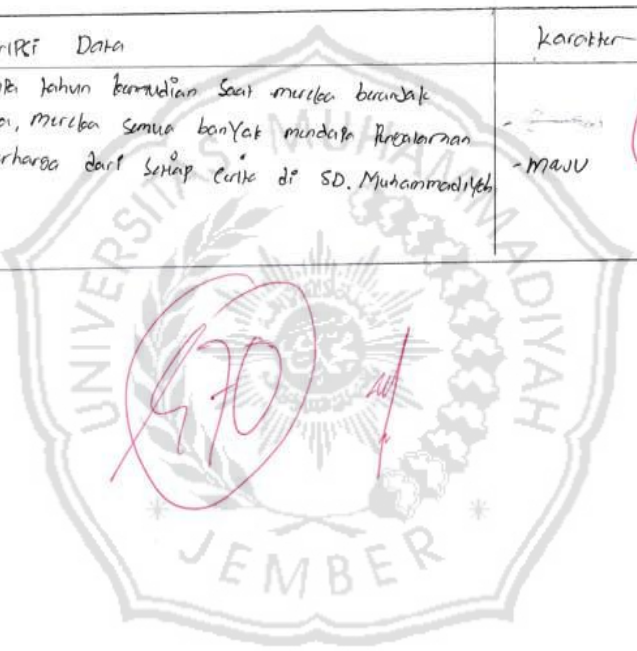 ripsi Data Karakter
tahun kemudian saat mereka beranjak
a, mereka semua banyak mendapa Pengalaman
erharga dari setiap cerita di SD. Muhammadiyah
- maju
470
UNIVERSITAS MUHAMMADIYAH
JEMBER